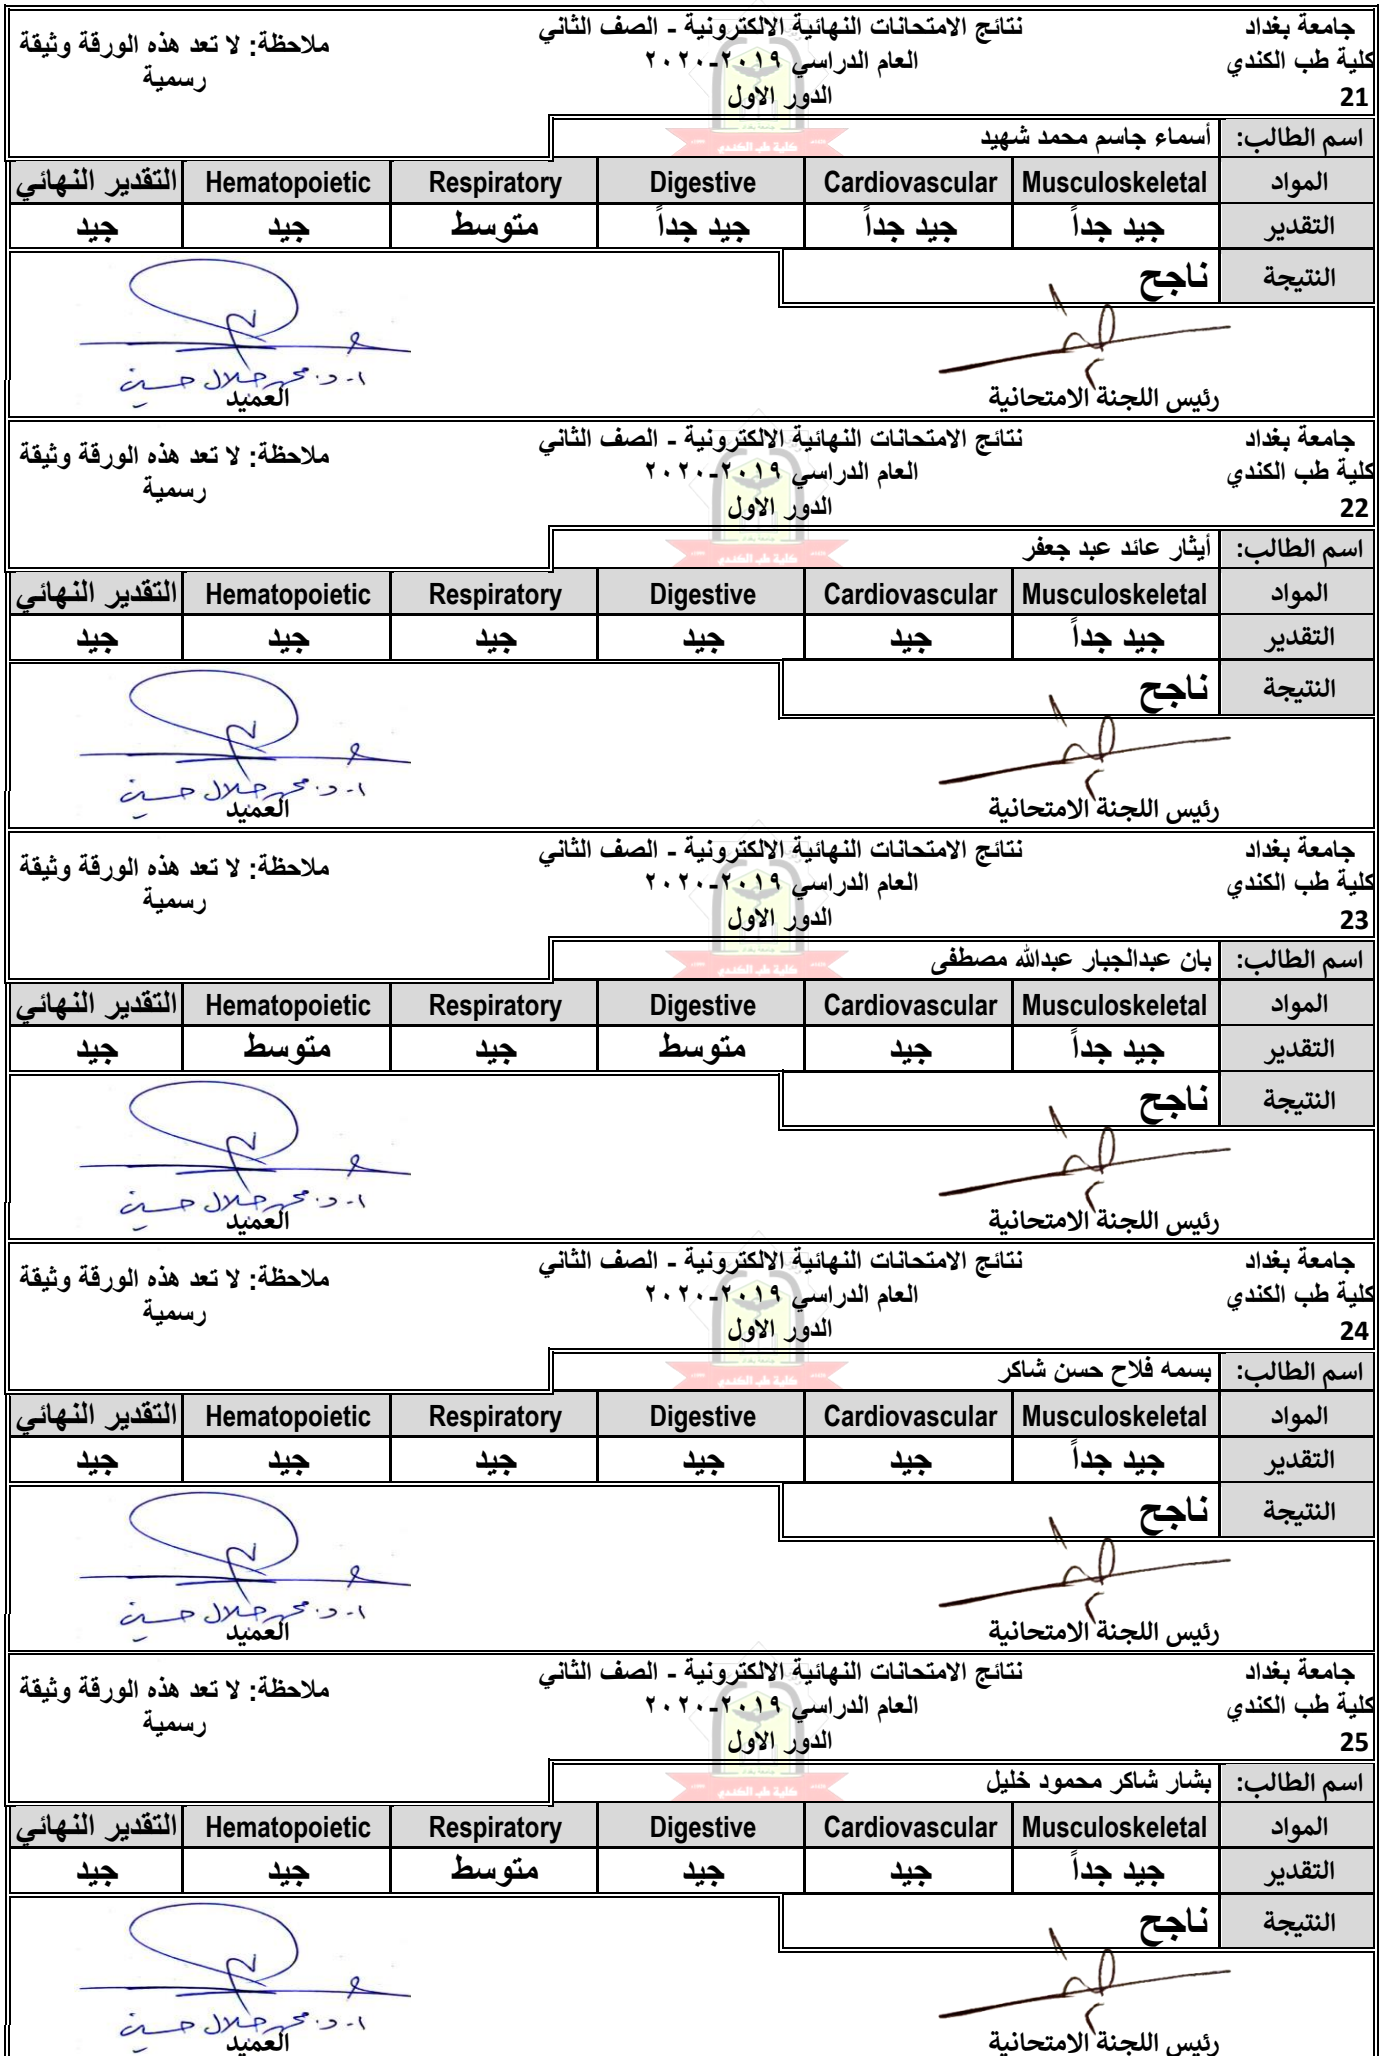 جامعة بغداد
كلية طب الكندي
21
نتائج الامتحانات النهائية الالكترونية - الصف الثاني
العام الدراسي ٢٠١٩-٢٠٢٠
الدور الاول
ملاحظة: لا تعد هذه الورقة وثيقة
رسمية
كلية طب الكندي
اسم الطالب: أسماء جاسم محمد شهيد
المواد Musculoskeletal Cardiovascular Digestive Respiratory Hematopoietic التقدير النهائي
التقدير جيد جداً جيد جداً جيد جداً متوسط جيد جيد
النتيجة ناجح
ا. د. محمد جلال حسين
رئيس اللجنة الامتحانية العميد
جامعة بغداد
كلية طب الكندي
22
نتائج الامتحانات النهائية الالكترونية - الصف الثاني
العام الدراسي ٢٠١٩-٢٠٢٠
الدور الاول
ملاحظة: لا تعد هذه الورقة وثيقة
رسمية
كلية طب الكندي
اسم الطالب: أيثار عائد عبد جعفر
المواد Musculoskeletal Cardiovascular Digestive Respiratory Hematopoietic التقدير النهائي
التقدير جيد جداً جيد جيد جيد جيد جيد
النتيجة ناجح
ا. د. محمد جلال حسين
رئيس اللجنة الامتحانية العميد
جامعة بغداد
كلية طب الكندي
23
نتائج الامتحانات النهائية الالكترونية - الصف الثاني
العام الدراسي ٢٠١٩-٢٠٢٠
الدور الاول
ملاحظة: لا تعد هذه الورقة وثيقة
رسمية
كلية طب الكندي
اسم الطالب: بان عبدالجبار عبدالله مصطفى
المواد Musculoskeletal Cardiovascular Digestive Respiratory Hematopoietic التقدير النهائي
التقدير جيد جداً جيد متوسط جيد متوسط جيد
النتيجة ناجح
ا. د. محمد جلال حسين
رئيس اللجنة الامتحانية العميد
جامعة بغداد
كلية طب الكندي
24
نتائج الامتحانات النهائية الالكترونية - الصف الثاني
العام الدراسي ٢٠١٩-٢٠٢٠
الدور الاول
ملاحظة: لا تعد هذه الورقة وثيقة
رسمية
كلية طب الكندي
اسم الطالب: بسمه فلاح حسن شاكر
المواد Musculoskeletal Cardiovascular Digestive Respiratory Hematopoietic التقدير النهائي
التقدير جيد جداً جيد جيد جيد جيد جيد
النتيجة ناجح
ا. د. محمد جلال حسين
رئيس اللجنة الامتحانية العميد
جامعة بغداد
كلية طب الكندي
25
نتائج الامتحانات النهائية الالكترونية - الصف الثاني
العام الدراسي ٢٠١٩-٢٠٢٠
الدور الاول
ملاحظة: لا تعد هذه الورقة وثيقة
رسمية
كلية طب الكندي
اسم الطالب: بشار شاكر محمود خليل
المواد Musculoskeletal Cardiovascular Digestive Respiratory Hematopoietic التقدير النهائي
التقدير جيد جداً جيد جيد متوسط جيد جيد
النتيجة ناجح
ا. د. محمد جلال حسين
رئيس اللجنة الامتحانية العميد